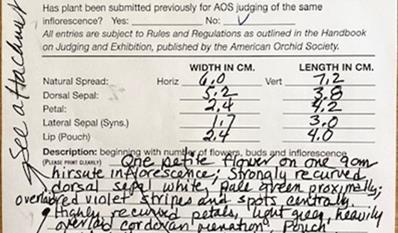 Has plant been submitted previously for AOS judging of the same
inflorescence? Yes: No: ✓
All entries are subject to Rules and Regulations as outlined in the Handbook
on Judging and Exhibition, published by the American Orchid Society.
WIDTH IN CM. LENGTH IN CM.
Natural Spread: Horiz 6.0 Vert 7.2
Dorsal Sepal: 5.2 3.8
Petal: 2.4 4.2
Lateral Sepal (Syns.) 1.7 3.0
Lip (Pouch) 2.4 4.0
Description: beginning with number of flowers, buds and inflorescence
(PLEASE PRINT CLEARLY) One petite flower on one 9cm
hirsute inflorescence; strongly recurved
dorsal sepal white, pale green proximally;
overlaid red violet stripes and spots centrally.
Highly recurved petals, light green, heavily
overlaid cordovan venation, Pouch
See attachment